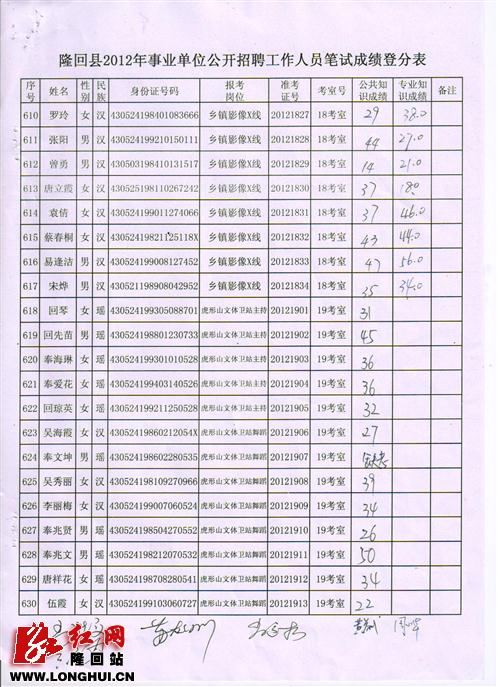 隆回县2012年事业单位公开招聘工作人员笔试成绩登分表
序号 姓名 性别 民族 身份证号码 报考岗位 准考证号 考室号 公共知识成绩 专业知识成绩 备注
610 罗玲 女 汉 430524198401083666 乡镇影像X线 20121827 18考室 29 38.0
611 张阳 男 汉 430524199210150111 乡镇影像X线 20121828 18考室 44 27.0
612 曾勇 男 汉 430503198410131517 乡镇影像X线 20121829 18考室 14 21.0
613 唐立霞 女 汉 430525198110267242 乡镇影像X线 20121830 18考室 37 18.0
614 袁倩 女 汉 430524199011274066 乡镇影像X线 20121831 18考室 37 46.0
615 蔡春桐 女 汉 43052419821125118X 乡镇影像X线 20121832 18考室 43 44.0
616 易逢洁 男 汉 430524199008127452 乡镇影像X线 20121833 18考室 47 56.0
617 宋烨 男 汉 430528198908042952 乡镇影像X线 20121834 18考室 35 34.0
618 回琴 女 瑶 430524199305088701 虎形山文体卫站主持 20121901 19考室 31
619 回先苗 男 瑶 430524198801230733 虎形山文体卫站主持 20121902 19考室 45
620 奉海琳 女 瑶 430524199301010528 虎形山文体卫站主持 20121903 19考室 36
621 奉爱花 女 瑶 430524199403140526 虎形山文体卫站主持 20121904 19考室 36
622 回琼英 女 瑶 430524199211250528 虎形山文体卫站主持 20121905 19考室 32
623 吴海霞 女 汉 43052419860212054X 虎形山文体卫站舞蹈 20121906 19考室 27
624 奉文坤 男 瑶 430524198602280535 虎形山文体卫站舞蹈 20121907 19考室 缺考
625 吴秀丽 女 汉 430524198109270966 虎形山文体卫站舞蹈 20121908 19考室 39
626 李丽梅 女 汉 430524199007060524 虎形山文体卫站舞蹈 20121909 19考室 34
627 奉兆贤 男 瑶 430524198504270552 虎形山文体卫站舞蹈 20121910 19考室 26
628 奉兆文 男 瑶 430524198212070532 虎形山文体卫站舞蹈 20121911 19考室 50
629 唐祥花 女 瑶 430524198708280541 虎形山文体卫站舞蹈 20121912 19考室 34
630 伍霞 女 汉 430524199103060727 虎形山文体卫站舞蹈 20121913 19考室 22
红网
隆回站
www.LONGHUI.CN